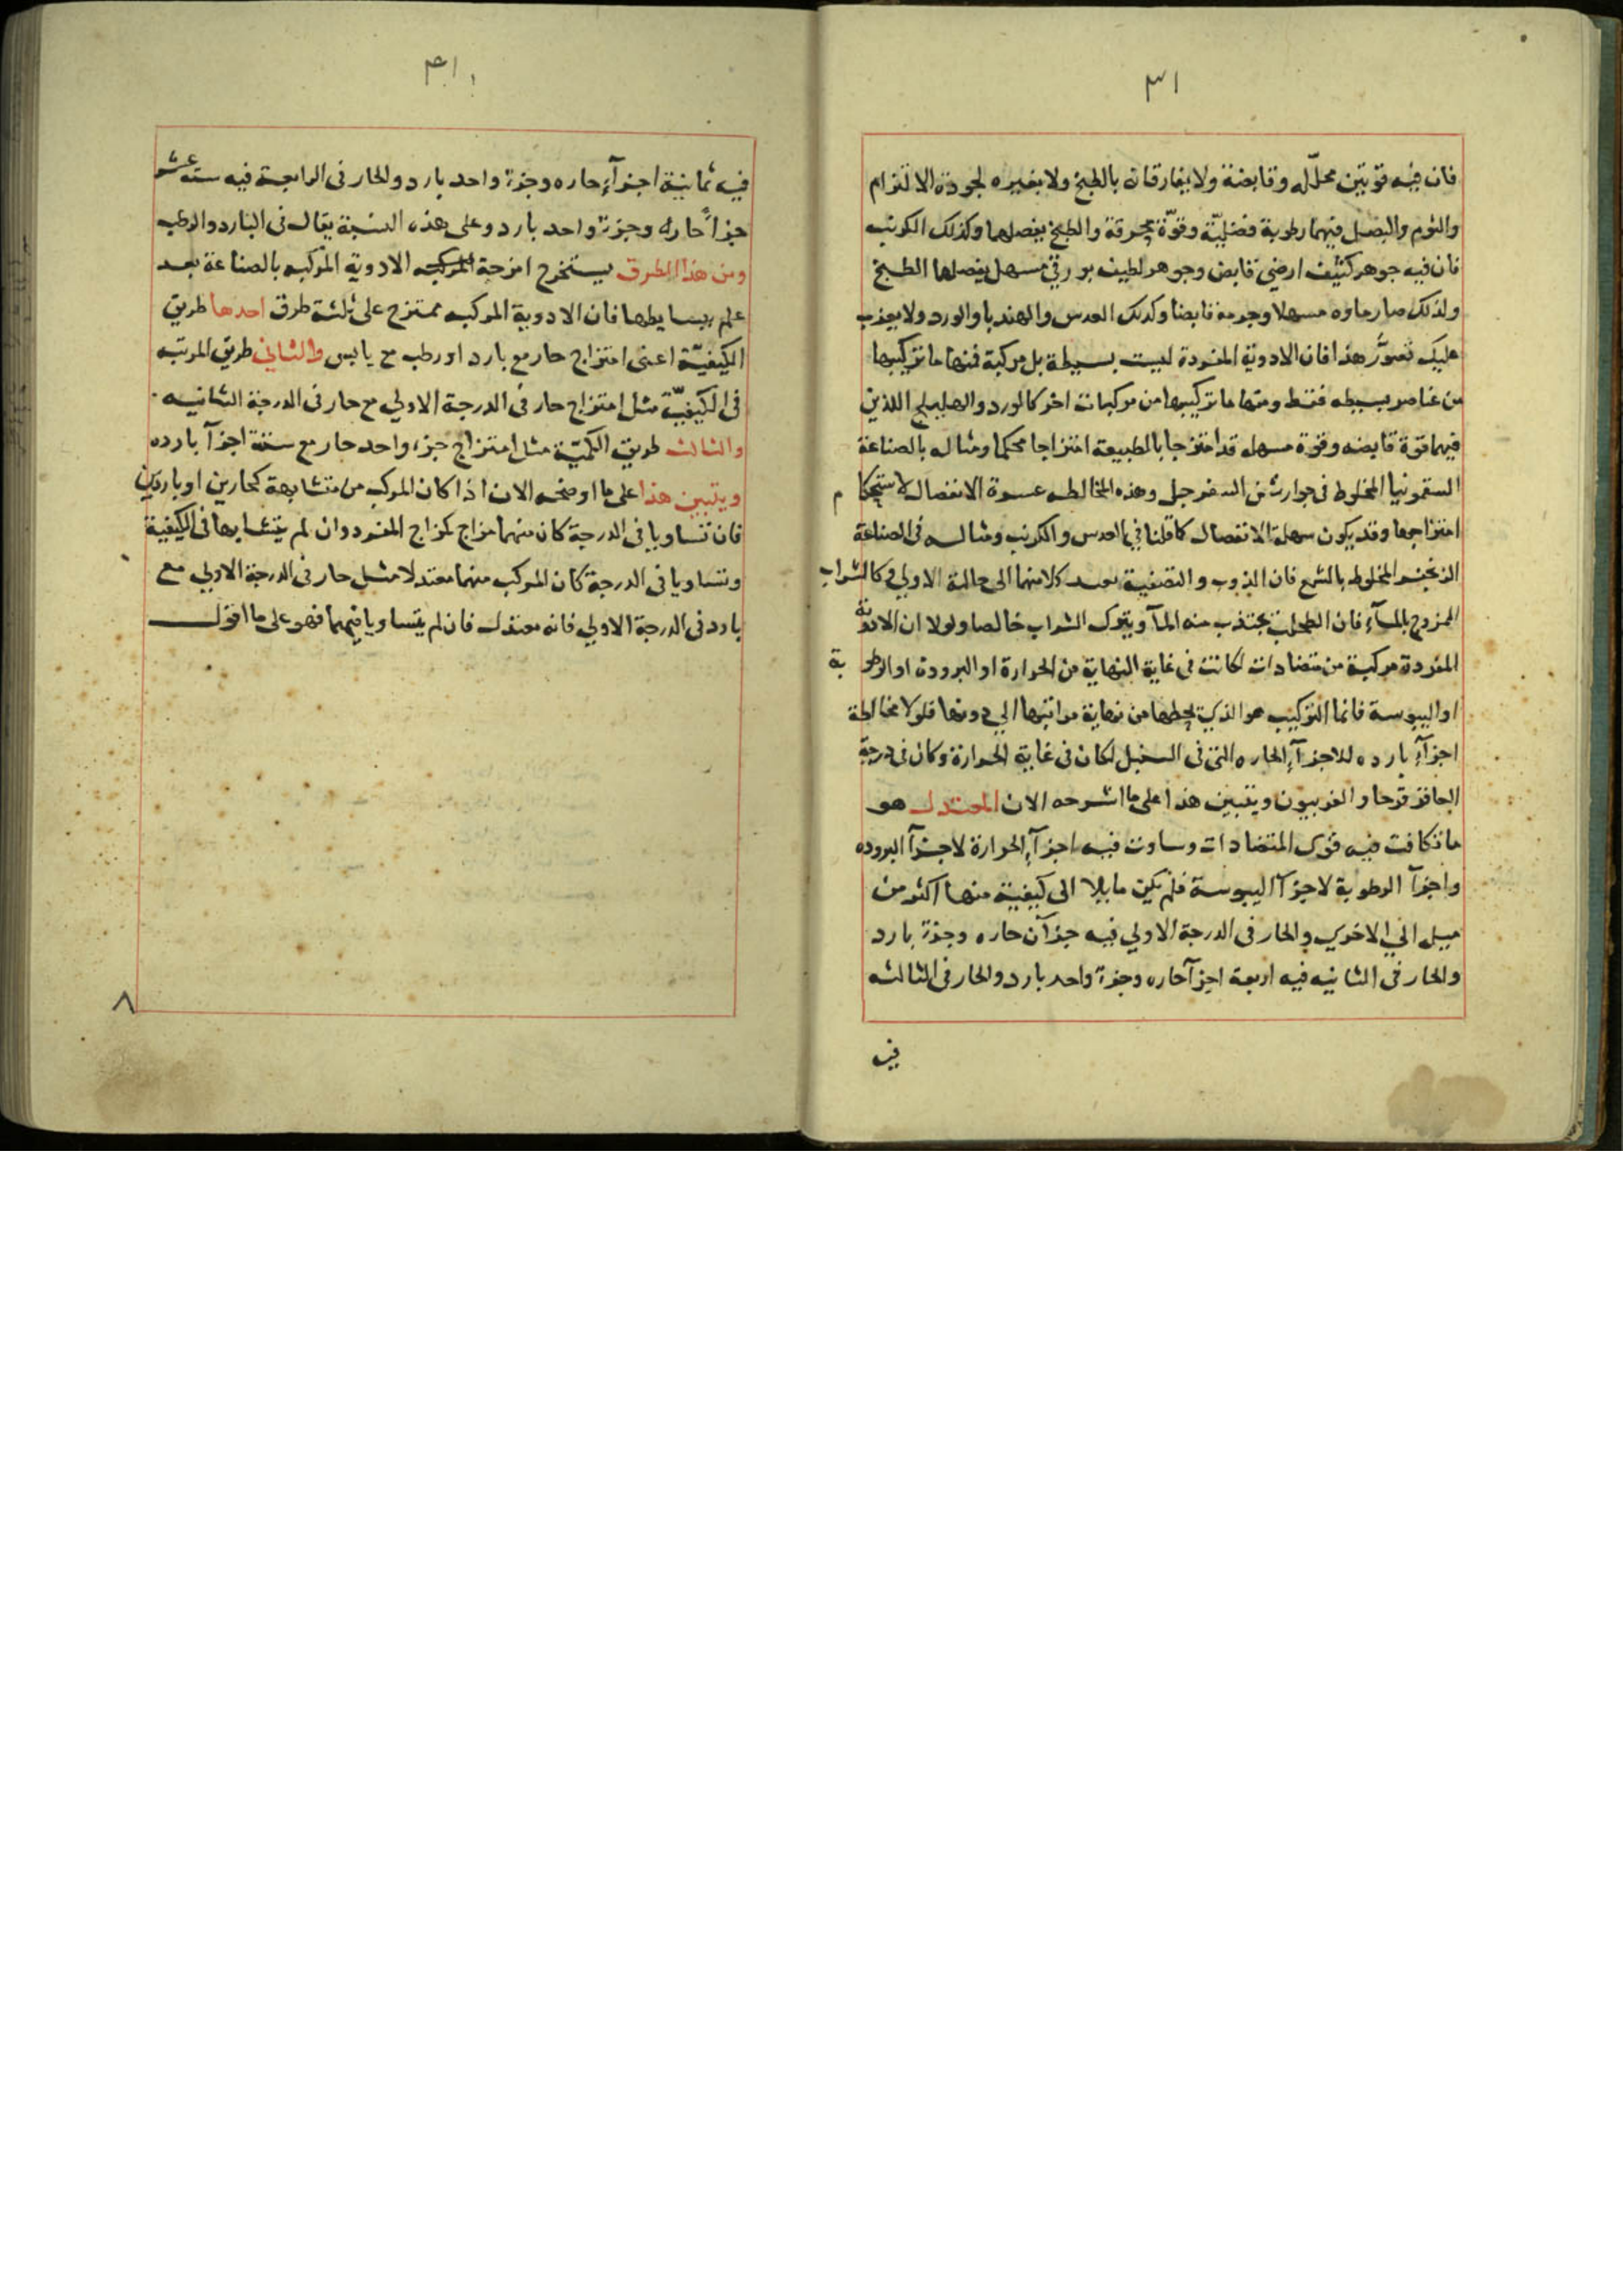 ٣١
فان فيه قوتين محلله وقابضة ولا يفارقان بالطبخ ولا بغيره لجودة الالتزام
والثوم والبصل فيهما رطوبة فضليّة وقوّة محرقة والطبخ يفصلها وكذلك الكرنب
فان فيه جوهر كثيف ارضي قابض وجوهر لطيف بورقي مسهل يفصلها الطبخ
ولذلك صار ماوه مسهلا وجرمه قابضا وكذلك العدس والهندبا والورد ولا يعذب
عليك تصوّر هذا فان الادوية المفردة ليست بسيطة بل مركبة فمنها ما تركيبها
من عناصر بسيطه فقط ومنها ما تركيبها من مركبات اخر كالورد والهليلج اللذين
فيهما قوة قابضه وقوة مسهله قد امتزجا بالطبيعة امتزاجا محكما ومثاله بالصناعة
السقمونيا المخلوط في جوارشن السفرجل وهذه المخالطه عسرة الانفصال لاستحكام
امتزاجها وقد يكون سهلة الانفصال كما قلنا في العدس والكرنب ومثاله في الصناعة
المخلوط بالشمع فان الذوب والتصفية يعيد كلا منهما الى حالته الاولي وكالشراب
الممزوج بالمآء فان الطحلب يجتذب منه المآ ويترك الشراب خالصا ولولا ان الادوية
المفردة مركبة من متضادات لكانت في غاية النهاية من الحرارة او البرودة او الرطوبة
او اليبوسة فانما التركيب هو الذي يحطها من نهاية مراتبها الي دونها فلولا مخالطة
اجزآء بارده للاجزآء الحاره التي في السنبل لكان في غاية الحرارة وكان في درجة
العاقر قرحا والفربيون ويتبين هذا على ما اشرحه الان المعتدل هو
ما تكافت فيه قوى المتضادات وساوت فيه اجزآء الحرارة لاجزآ البروده
واجزآ الرطوبة لاجزآ اليبوسة فلم يكن مايلا الى كيفية منها اكثر من
ميل الي الاخري والحار في الدرجة الاولي فيه جزآن حاره وجزء بارد
والحار في الثانيه فيه اربعة اجزآ حاره وجزء واحد بارد والحار في الثالثه
فيه
٣١
فيه ثمانية اجزآء حاره وجزء واحد بارد والحار في الرابعة فيه ستة عشر
جزأ حاره وجزء واحد بارد وعلى هذه النسبة يقال في البارد والرطب
ومن هذا الطرق يستخرج امزجة الادوية المركبه بالصناعة بعد
علم بسايطها فان الادوية المركبه ممتزج على ثلثة طرق احدها طريق
الكيفيّة اعنى امتزاج حار مع بارد او رطب مع يابس والثاني طريق المرتبه
في الكيفيّة مثل امتزاج حار في الدرجة الاولي مع حار في الدرجة الثانيه
والثالث طريق الكميّة مثل امتزاج جزء واحد حار مع ستة اجزآ بارده
ويتبين هذا على ما اوضحه الان اذا كان المركب من متشابهة كحارين او باردين
فان تساويا في الدرجة كان منهما مزاج كمزاج المفرد وان لم يتشابها في الكيفية
وتساويا في الدرجة كان المركب منهما معتدلا مثل حار في الدرجة الاولي مع
بارد في الدرجة الاولي فانه معتدل فان لم يتساويا فيهما فهو على ما اقول
٨